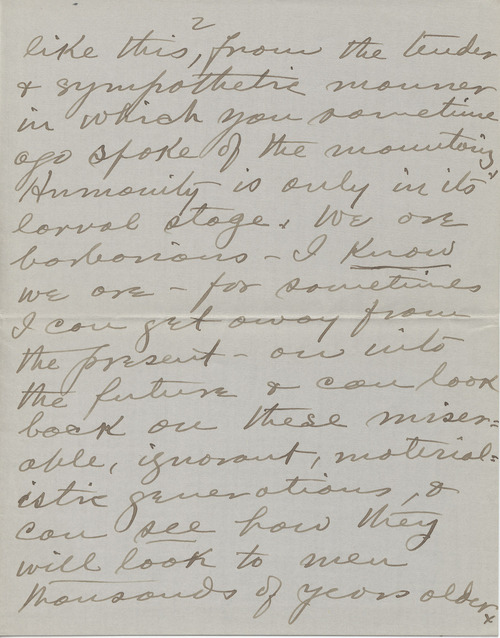 2
like this, from the tender
& sympathetic manner
in which you sometime
ago spoke of the mountains.
Humanity is only in its
larval stage. We are
barbarians - I know
we are - for sometimes
I can get away from
the present - on into
the future & can look
back on these miser=
able, ignorant, material=
istic generations, &
can see how they
will look to men
thousands of years older
x